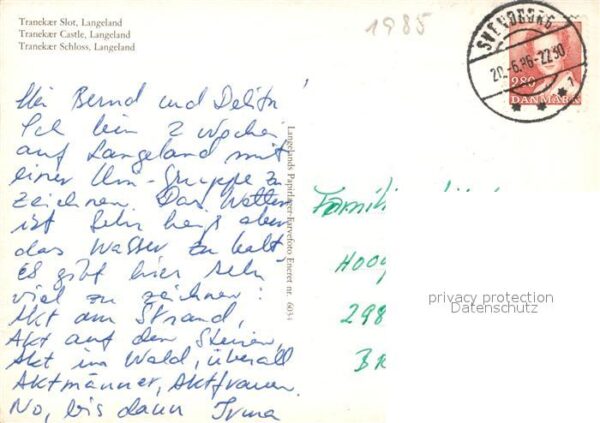 Tranekær Slot, Langeland
Tranekær Castle, Langeland
Tranekær Schloss, Langeland
1985
SVENDBORG
20.-6.86-22 30
1
280
DANMARK
Bernd und
Ich bin 2 Wochen
auf Langeland mit
einer Uni-Gruppe zu
zeichnen. Das Wetter
ist sehr heiß aber
das Wasser zu kalt,
es gibt hier sehr
viel zu zeichnen:
Akt am Strand,
Akt auf den Steinen,
Akt im Wald, überall
Aktmänner, Aktfrauen.
No, bis dann Irma
Langelands Papirlager-Farvefoto Eneret nr. 6034
Famili
HOOG
298
BR
privacy protection
Datenschutz